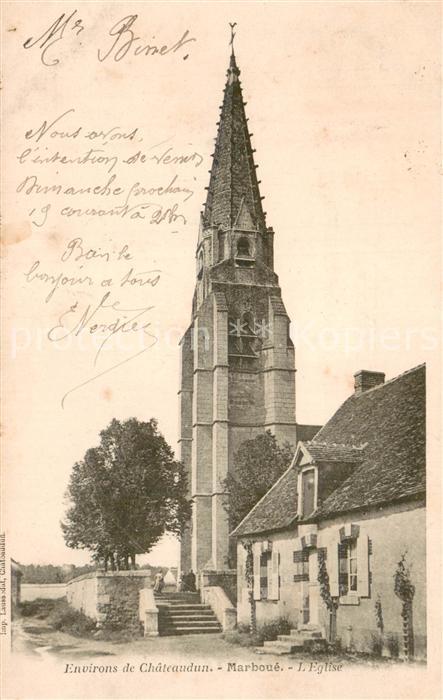 Mr Binet.
Nous avons,
l'intention de venir
Dimanche prochain
19 courant à 2h
bonjour à tous
Environs de Châteaudun. - Marboué. - L'Eglise
Imp. Laussedat, Châteaudun.